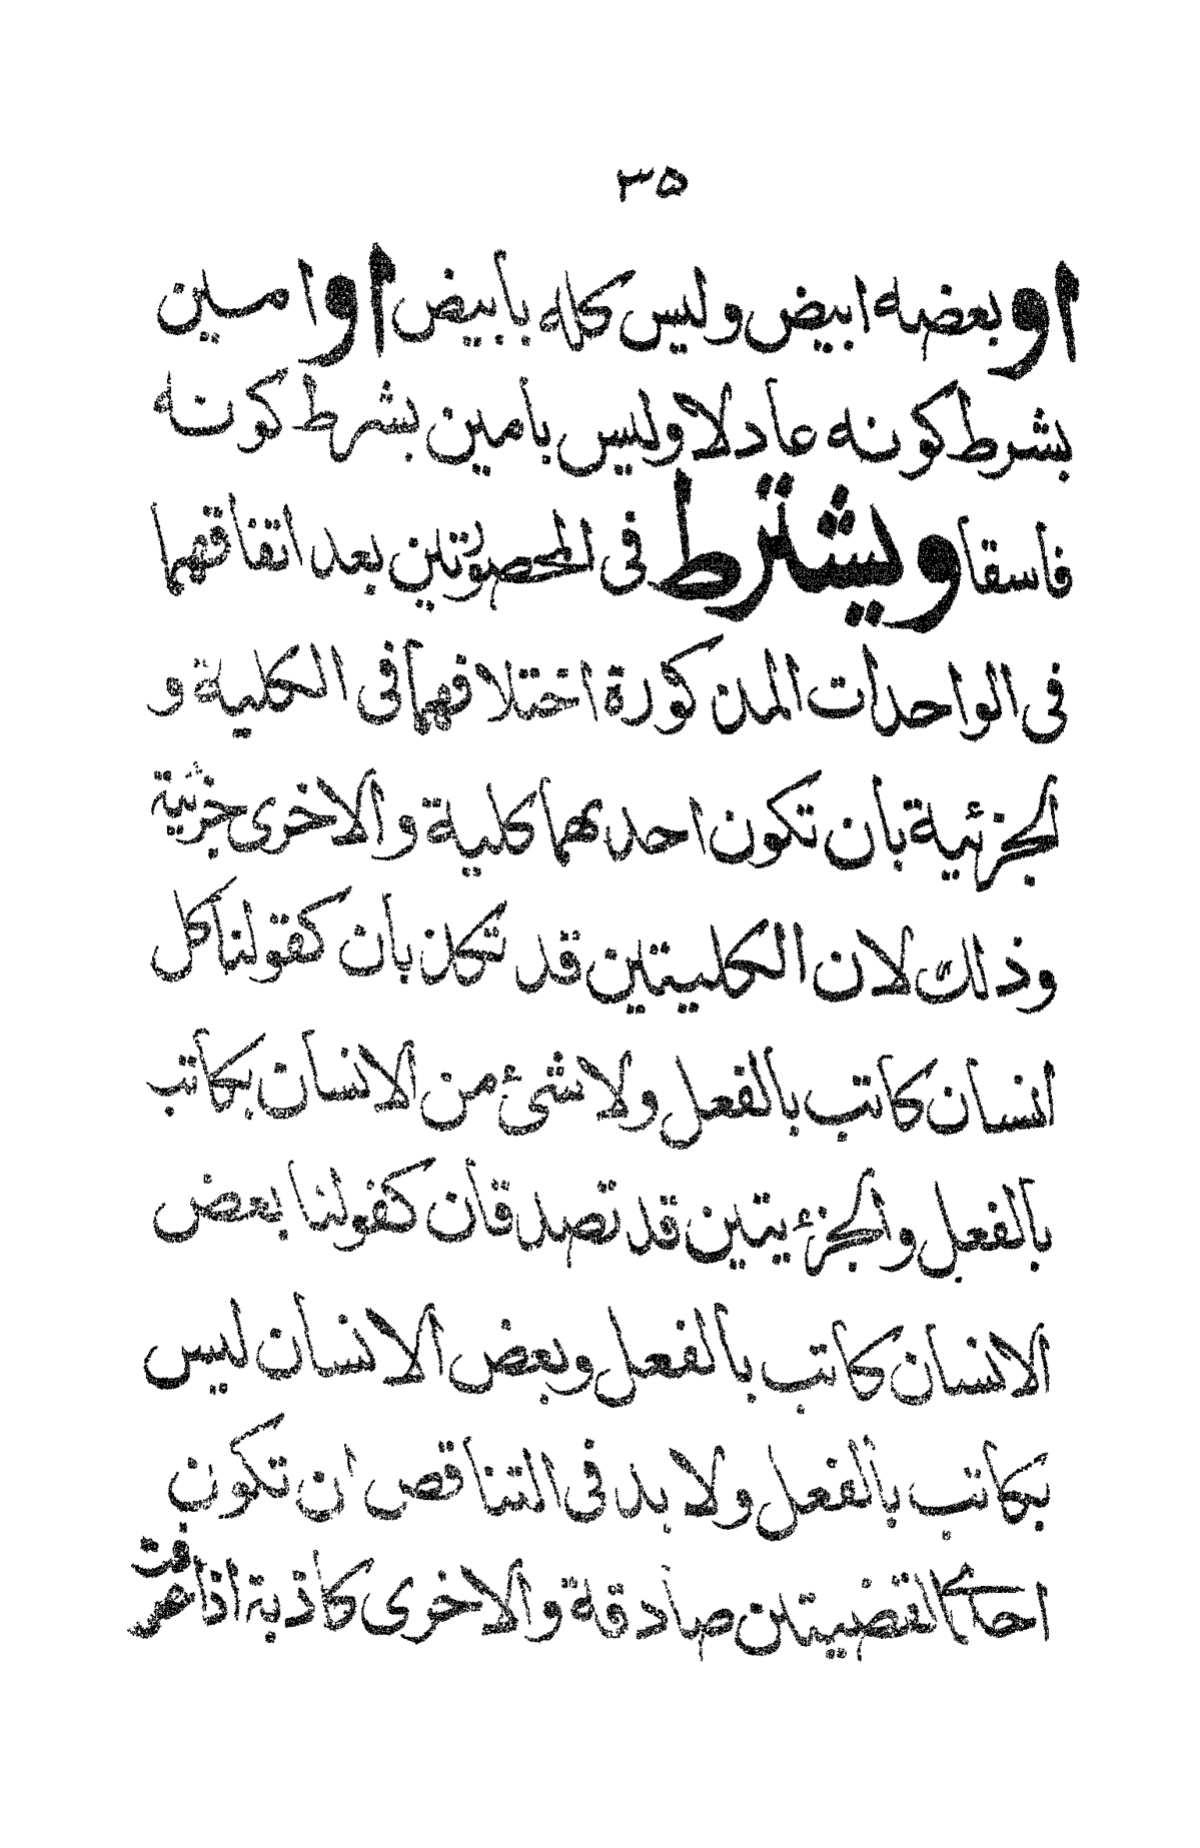 ٣٥
او بعضه ابيض وليس كله بابيض او امين
بشرط كونه عادلا وليس بامين بشرط كونه
فاسقا ويشترط فى المحصورتين بعد اتفاقهما
فى الواحدات المذكورة اختلافهما فى الكلية و
الجزئية بان تكون احدىهما كلية والاخرى جزئية
وذلك لان الكليتين قد تكذبان كقولنا كل
انسان كاتب بالفعل ولا شئ من الانسان بكاتب
بالفعل والجزئيتين قد تصدقان كقولنا بعض
الانسان كاتب بالفعل وبعض الانسان ليس
بكاتب بالفعل ولا بد فى التناقض ان تكون
احدى القضيتين صادقة والاخرى كاذبة اذا عرفت